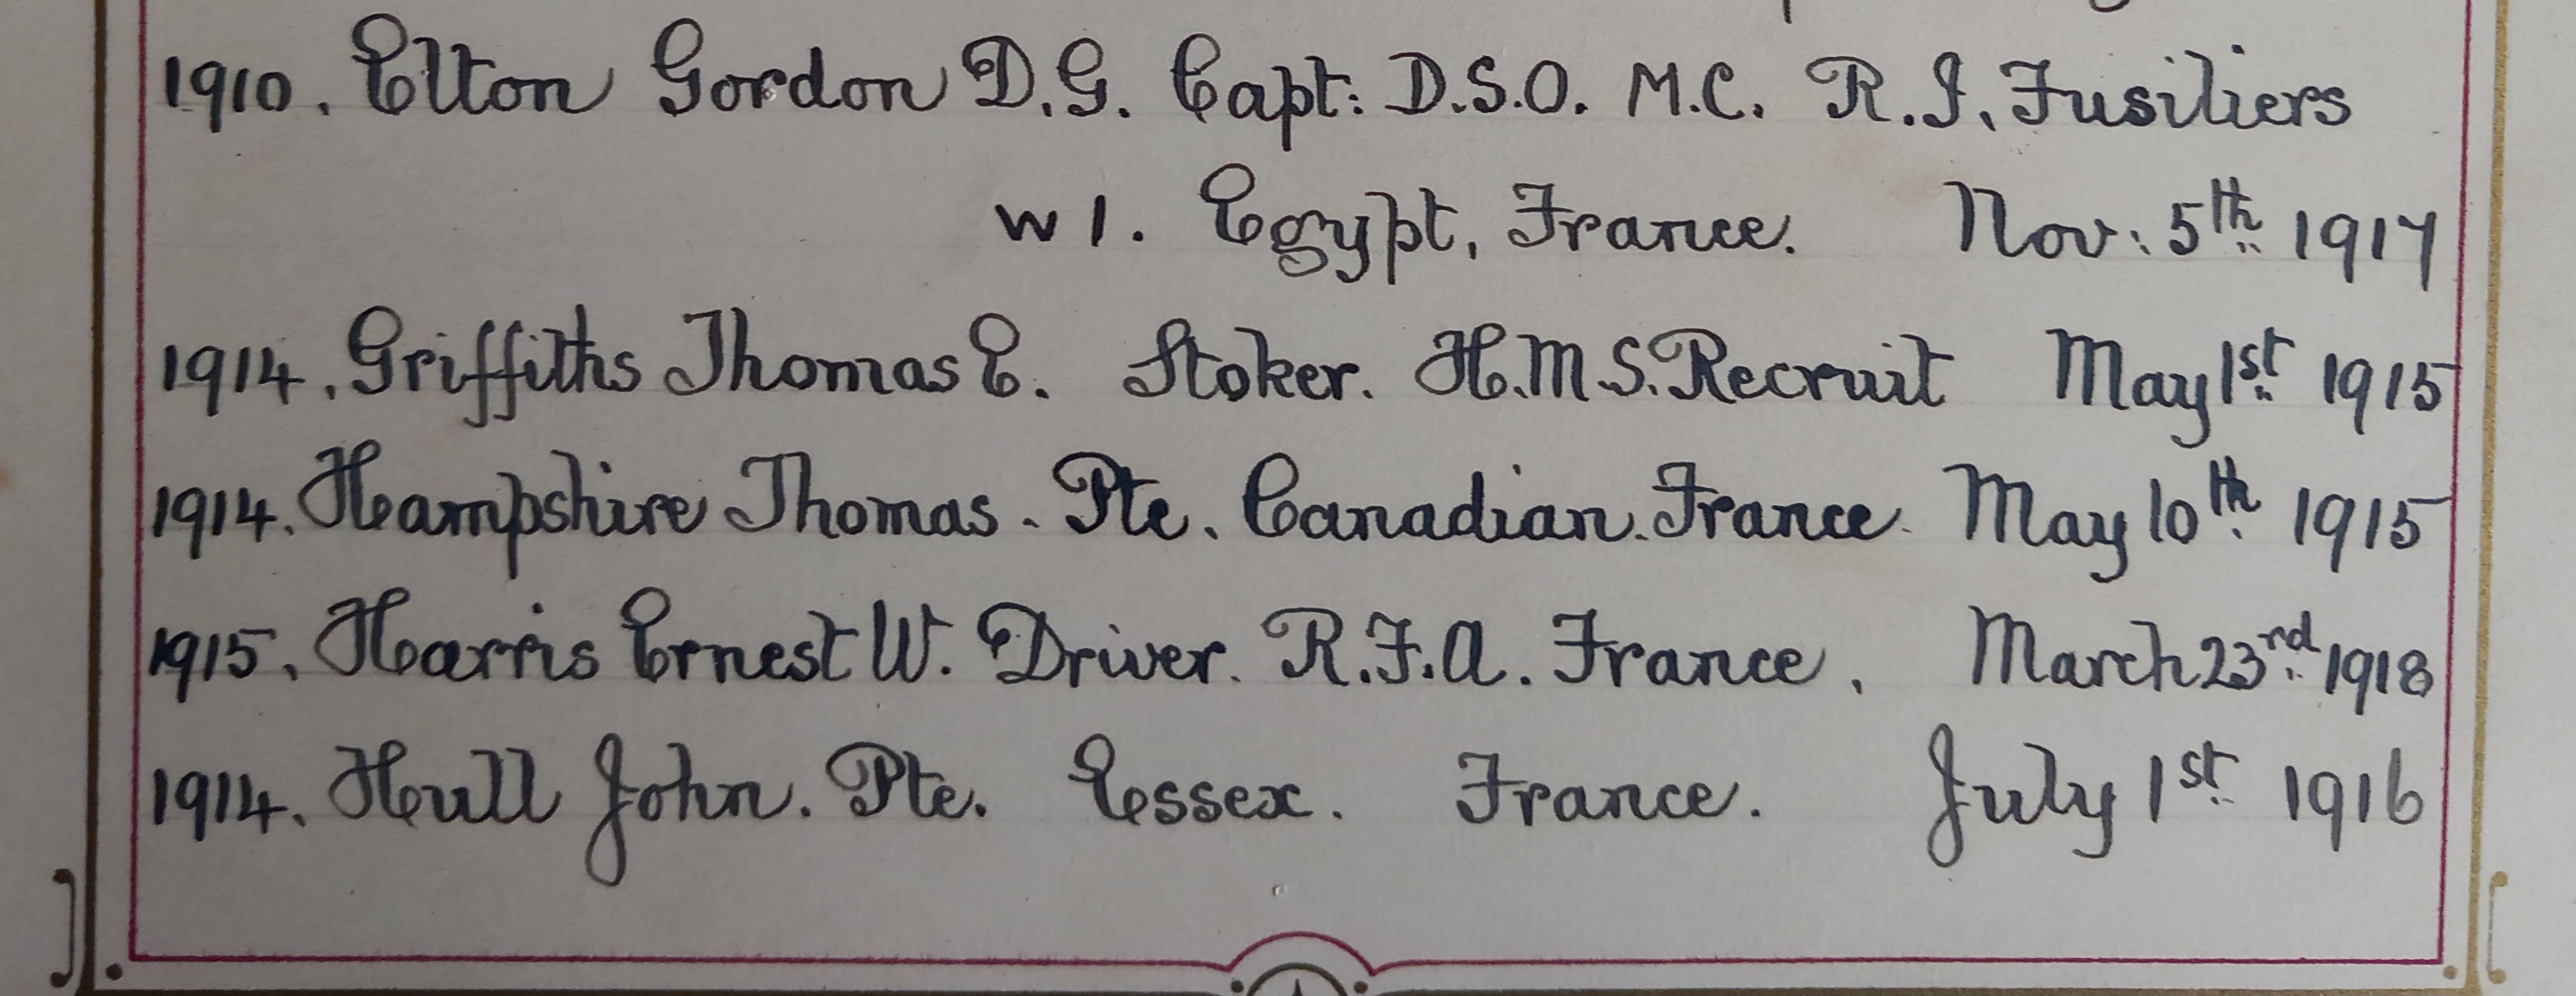 1910. Elton Gordon D.G. Capt: D.S.O. M.C. R.I. Fusiliers
W 1. Egypt, France. Nov: 5th 1917
1914. Griffiths Thomas E. Stoker. H.M.S. Recruit May 1st 1915
1914. Hampshire Thomas. Pte. Canadian. France. May 10th 1915
1915. Harris Ernest W. Driver. R.F.A. France. March 23rd 1918
1914. Hull John. Pte. Essex. France. July 1st 1916